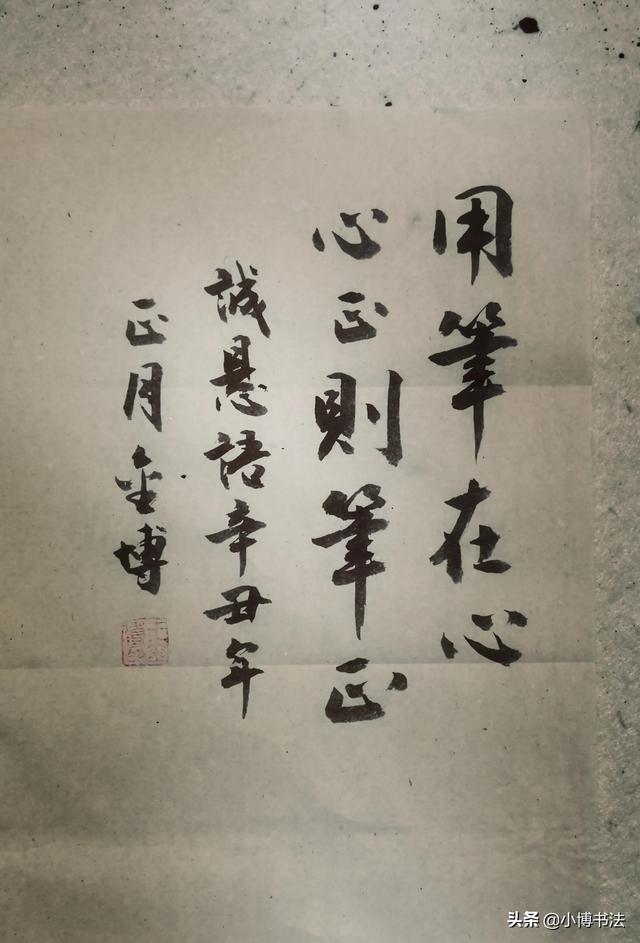 用筆在心
心正則筆正
誠懸語辛丑年
正月金博
头条 @小博书法